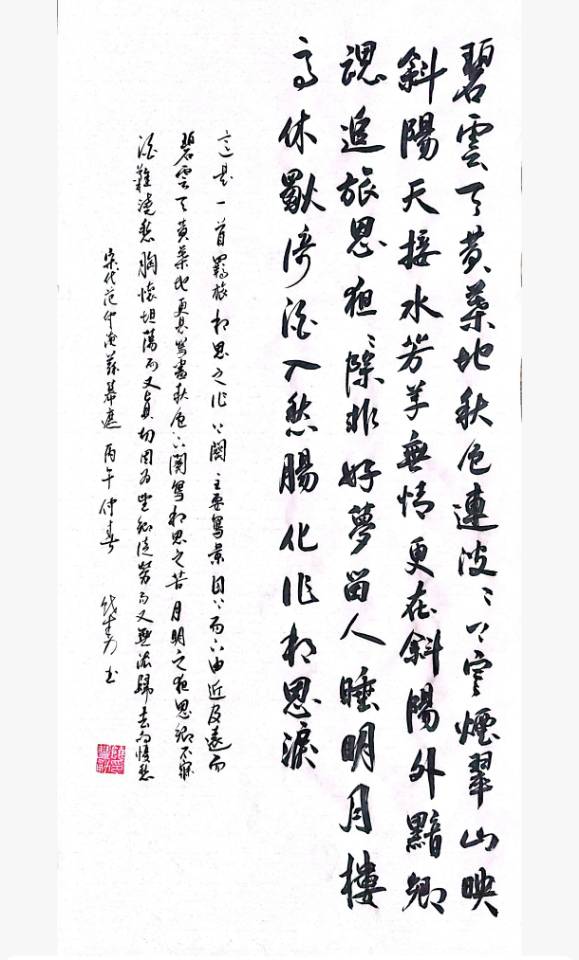 碧雲天黄葉地秋色連波〻上寒煙翠山映
斜陽天接水芳草無情更在斜陽外黯鄉
魂追旅思夜〻除非好夢留人睡明月樓
高休獨倚酒入愁腸化作相思淚
這是一首羈旅相思之作上闋主要寫景自上而下由近及遠而
碧雲天黄葉地更具寫盡秋色下闋寫相思之苦月明之夜思鄉不寐
酒難澆愁胸懷坦蕩而又真切因为望鄉徒勞而又無法歸去而憂愁
宋代范仲淹蘇幕遮 丙午仲春 书